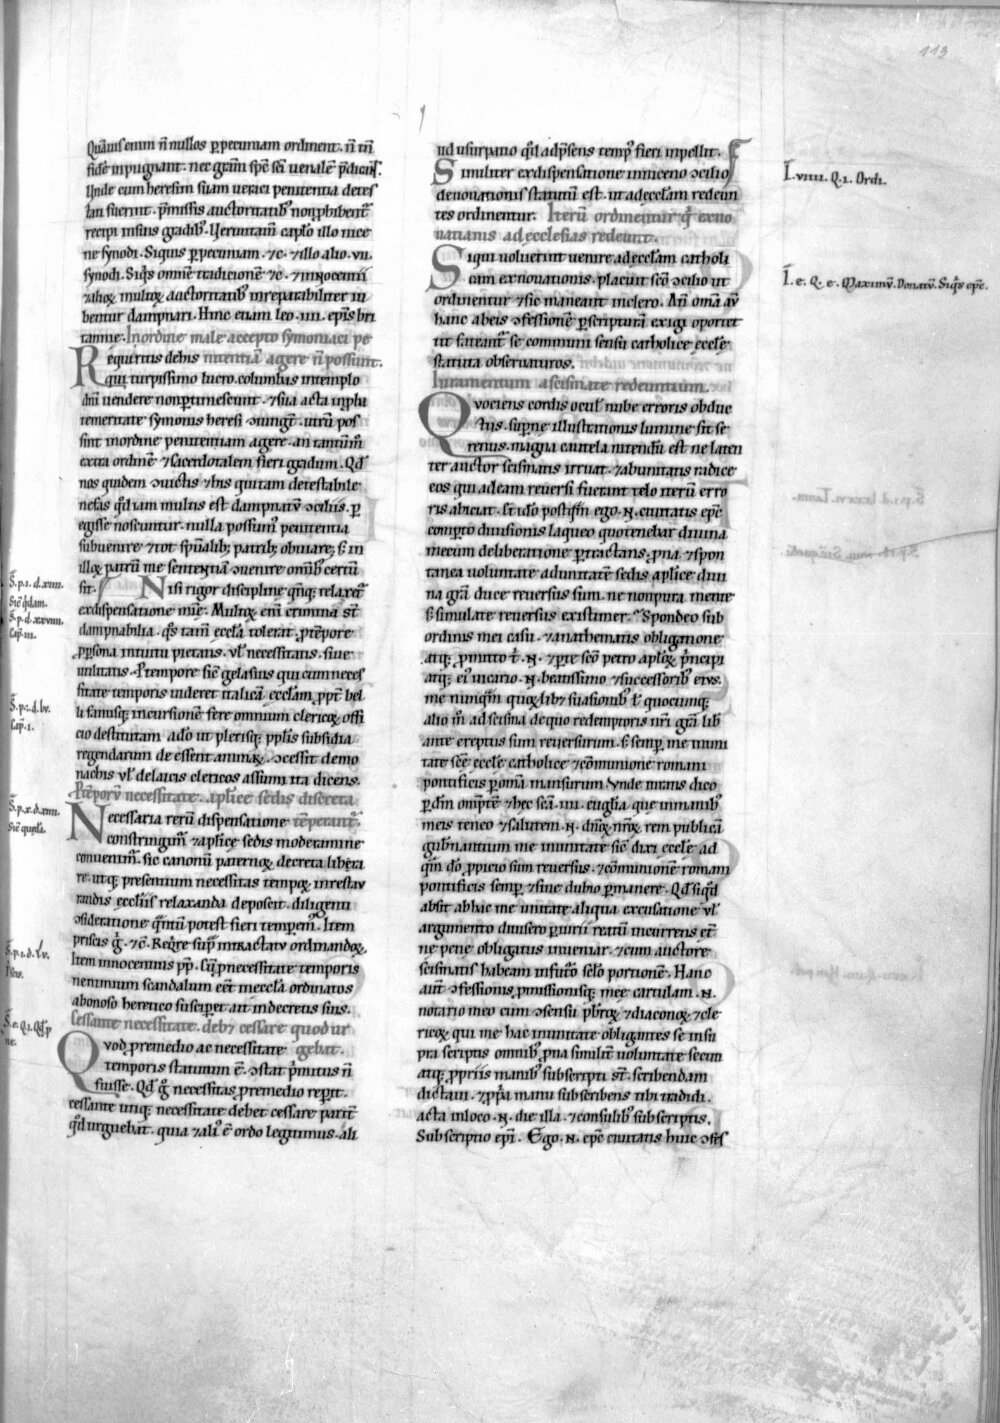 113
Quāuis enim n̄ nullos p̲ pecuniam ordinent. n̄ tn̄
fidē inpugnant. nec grām sp̄c sc̄i uenalē p̄dicant.
Vnde cum heresim suam ueraci penitentia detes
tati fuerint. p̄missis auctoritatib; non p̲hibent̄
recipi in suis gradib;. Verumtam̄ cap̄lo illo nice
ne synodi. Siquis p̲ pecuniam. ⁊c. ⁊ illo alio. vii.
synodi. Siq̄s omnē tradicionē ⁊c. ⁊ innocentii
⁊ alioꝝ multoꝝ auctoritatib; inreparabiliter iu
bentur dampnari. Hinc etiam leo .iiii. ep̄is bri
tannie. In ordine male accepto symoniaci pe
Requiritis debis nitentiā agere n̄ possunt.
qui turpissimo lucro. columbas in templo
dn̄i uendere non p̲timescunt. ⁊ sua acta in p̲pha
temeritate symonis heresi ↄiungt̄. utrū pos
sint in ordine penitentiam agere. an tantūm̄
extra ordinē ⁊ sacerdotalem fieri gradum. Qd̄
nos quidem ↄuictis ⁊ his quitam detestabile
nefas qd̄ iam multis est dampnatū ↄciliis. p̲
egisse noscuntur. nulla possum; penitentia
subuenire ⁊ tot sp̄nalib; patrib; obuiare; s; in
illoꝝ patrū me sententiā ↄuenire omib; certū
sit. Nisi rigor discipline qn̄q; relaxet̄
ex dispensatione mie. Multoꝝ eni crimina st̄
dampnabilia. q̄s tam̄ eccl̄a tolerat p̲ tēpore
p̲ p̲sona intuitu pietatis. vl̄ necessitatis. siue
utilitatis. P̲ tempore sic̄ gelasius qui cum neces
sitate temporis uideret italicā eccl̄am. ꝓpt̄ bel
li famisq; incursionē fere omnium clericoꝝ offi
cio destitutam adeo ut plerisq; pp̄lis subsidia
regendarum deessent animaꝝ. ↄcessit demo
nachis vl̄ de laicis clericos assumi ita dicens.
P̲ tēporū necessitate. ap̄lice sedis discreta
Necessaria rerū dispensatione tēperant̄.
constringum̄ ⁊ ap̄lice sedis moderamine
conuenim̄. sic canonū paternoꝝ decreta libera
re. utq; presentium necessitas tempoꝝ in restau
randis eccl̄iis relaxanda deposcit. diligenti
ↄsideratione q̄ntū potest fieri tempem̄. Item
priscis g̊. ⁊c̄. Req̄re sup̄ in tractatu ordinandoꝝ.
Item innocentius pp̄. Cū p̲ necessitate temporis
ne nimium scandalum eēt in eccl̄a ordinatos
abonoso heretico suscip̲et ait in decretis suis.
Cessante necessitate. deb; cessare quod ur
Quod p̲ remedio ac necessitate gebat.
temporis statutum ē. ↄstat p̄mitus n̄
fuisse. Qd̄ g̊ necessitas p̲ remedio rep̲it.
cessante utiq; necessitate debet cessare parit̄
qd̄ urguebat. quia ⁊ ali; ē ordo legitimus. ali
ud usurpatio qd̄ ad p̄sens temp; fieri inpellit.
Similiter ex dispensatione in niceno ↄcilio
de nouationis statutū est. ut ad eccl̄am redeun
tes ordinentur. Iterū ordinentur q̄ exno
uatianis ad ecclesias redeunt.
Siqui uoluerint uenire ad eccl̄am catholi
cam ex nouationis. placuit sc̄o ↄcilio ut
ordinentur ⁊ sic maneant in clero. An̄ om̄a aū
hanc abeis ↄfessionē p̲ scripturā exigi oportet
ut fateant̄ se communi sensu catholice eccl̄e
statuta obseruaturos.
Iuramentum a scismate redeuntium.
Quociens cordis ocul; nube erroris obduc
tus. sup̲ne illustrationis lumine fit se
renus. magna cautela nitendū est ne laten
ter auctor scismatis irruat. ⁊ ab unitatis radice
eos qui ad eam reuersi fuerant telo iterū erro
ris abiciat. Et id̄o postq̄m ego .N. ciuitatis ep̄c
comp̲to diuisionis laqueo quo tenebar diutina
mecum deliberatione p̲tractans. p̲na ⁊ spon
tanea uoluntate ad unitatē sedis ap̄lice diui
na grā duce reuersus sum. ne non pura mente
s; simulate reuersus existimer. Spondeo sub
ordinis mei casu. ⁊ anathematis obligatione
atq; p̲mitto t̄. N. ⁊ p̲ te sc̄o petro ap̄loꝝ p̄ncipi
atq; ei; uicario .N. beatissimo ⁊ successorib; eius.
me nunq̄m quoꝝlib; suasionib; l̄ quocunq;
alio m̄ ad scisma de quo redemptoris nr̄i grā lib̲
ante ereptus sum reuersurum. s; semp̲ me in uni
tate sc̄e eccl̄e catholice ⁊ cōmunione romani
pontificis p̲ om̄a mansurum. Vnde iurans dico
p̲ dm̄ om̄ptē ⁊ hec sc̄a .iiii. eug̅lia que in manib;
meis teneo ⁊ salutem .N. dn̄oꝝ nr̄oꝝ rem publicā
gub̲nantium me in unitate sic̄ dixi eccl̄e ad
q̄m dō p̲picio sum reuersus. ⁊ cōmunione romani
pontificis semp̲ ⁊ sine dubio p̲manere. Qd̄ siqd̄
absit ab hac me unitate aliqua excusatione vl̄
argumento diuisero p̲iurii reatū incurrens et̄
ne pene obligatus inueniar. ⁊ cum auctore
scismatis habeam in futo sclo portionē. Hanc
aut̄ ↄfessionis p̲missionisq; mee cartulam .N.
notario meo cum ↄsensu pb̄roꝝ ⁊ diaconoꝝ ⁊ cle
ricoꝝ qui me hac in unitate obligantes se in su
pra scriptis omnib; p̲na similit̄ uoluntate secun
atq; p̲priis manib; subscripti st̄. scribendam
dictaui. ⁊ p̲p̄a manu subscribens tibi tradidi.
acta in loco .N. die illa. ⁊ consulib; subscriptis.
Subscriptio ep̄i. Ego .N. ep̄c ciuitatis huic ↄfes
S̄. p. i. d. xiiii.
Sic̄ qd̄am.
S̄. p. d. xxviii.
Cap̄. iii.
S̄. p. i. d. lv.
Cap̄. i.
Sic̄ qued̄a.
S̄. p. i. d. Lv.
S̄. e. Q. i. Qd̄ p̲
ne.
I. viiii. Q. i. Ordi.
I. e. Q. e. Maximū. Donatū. Siq̄s ep̄c.